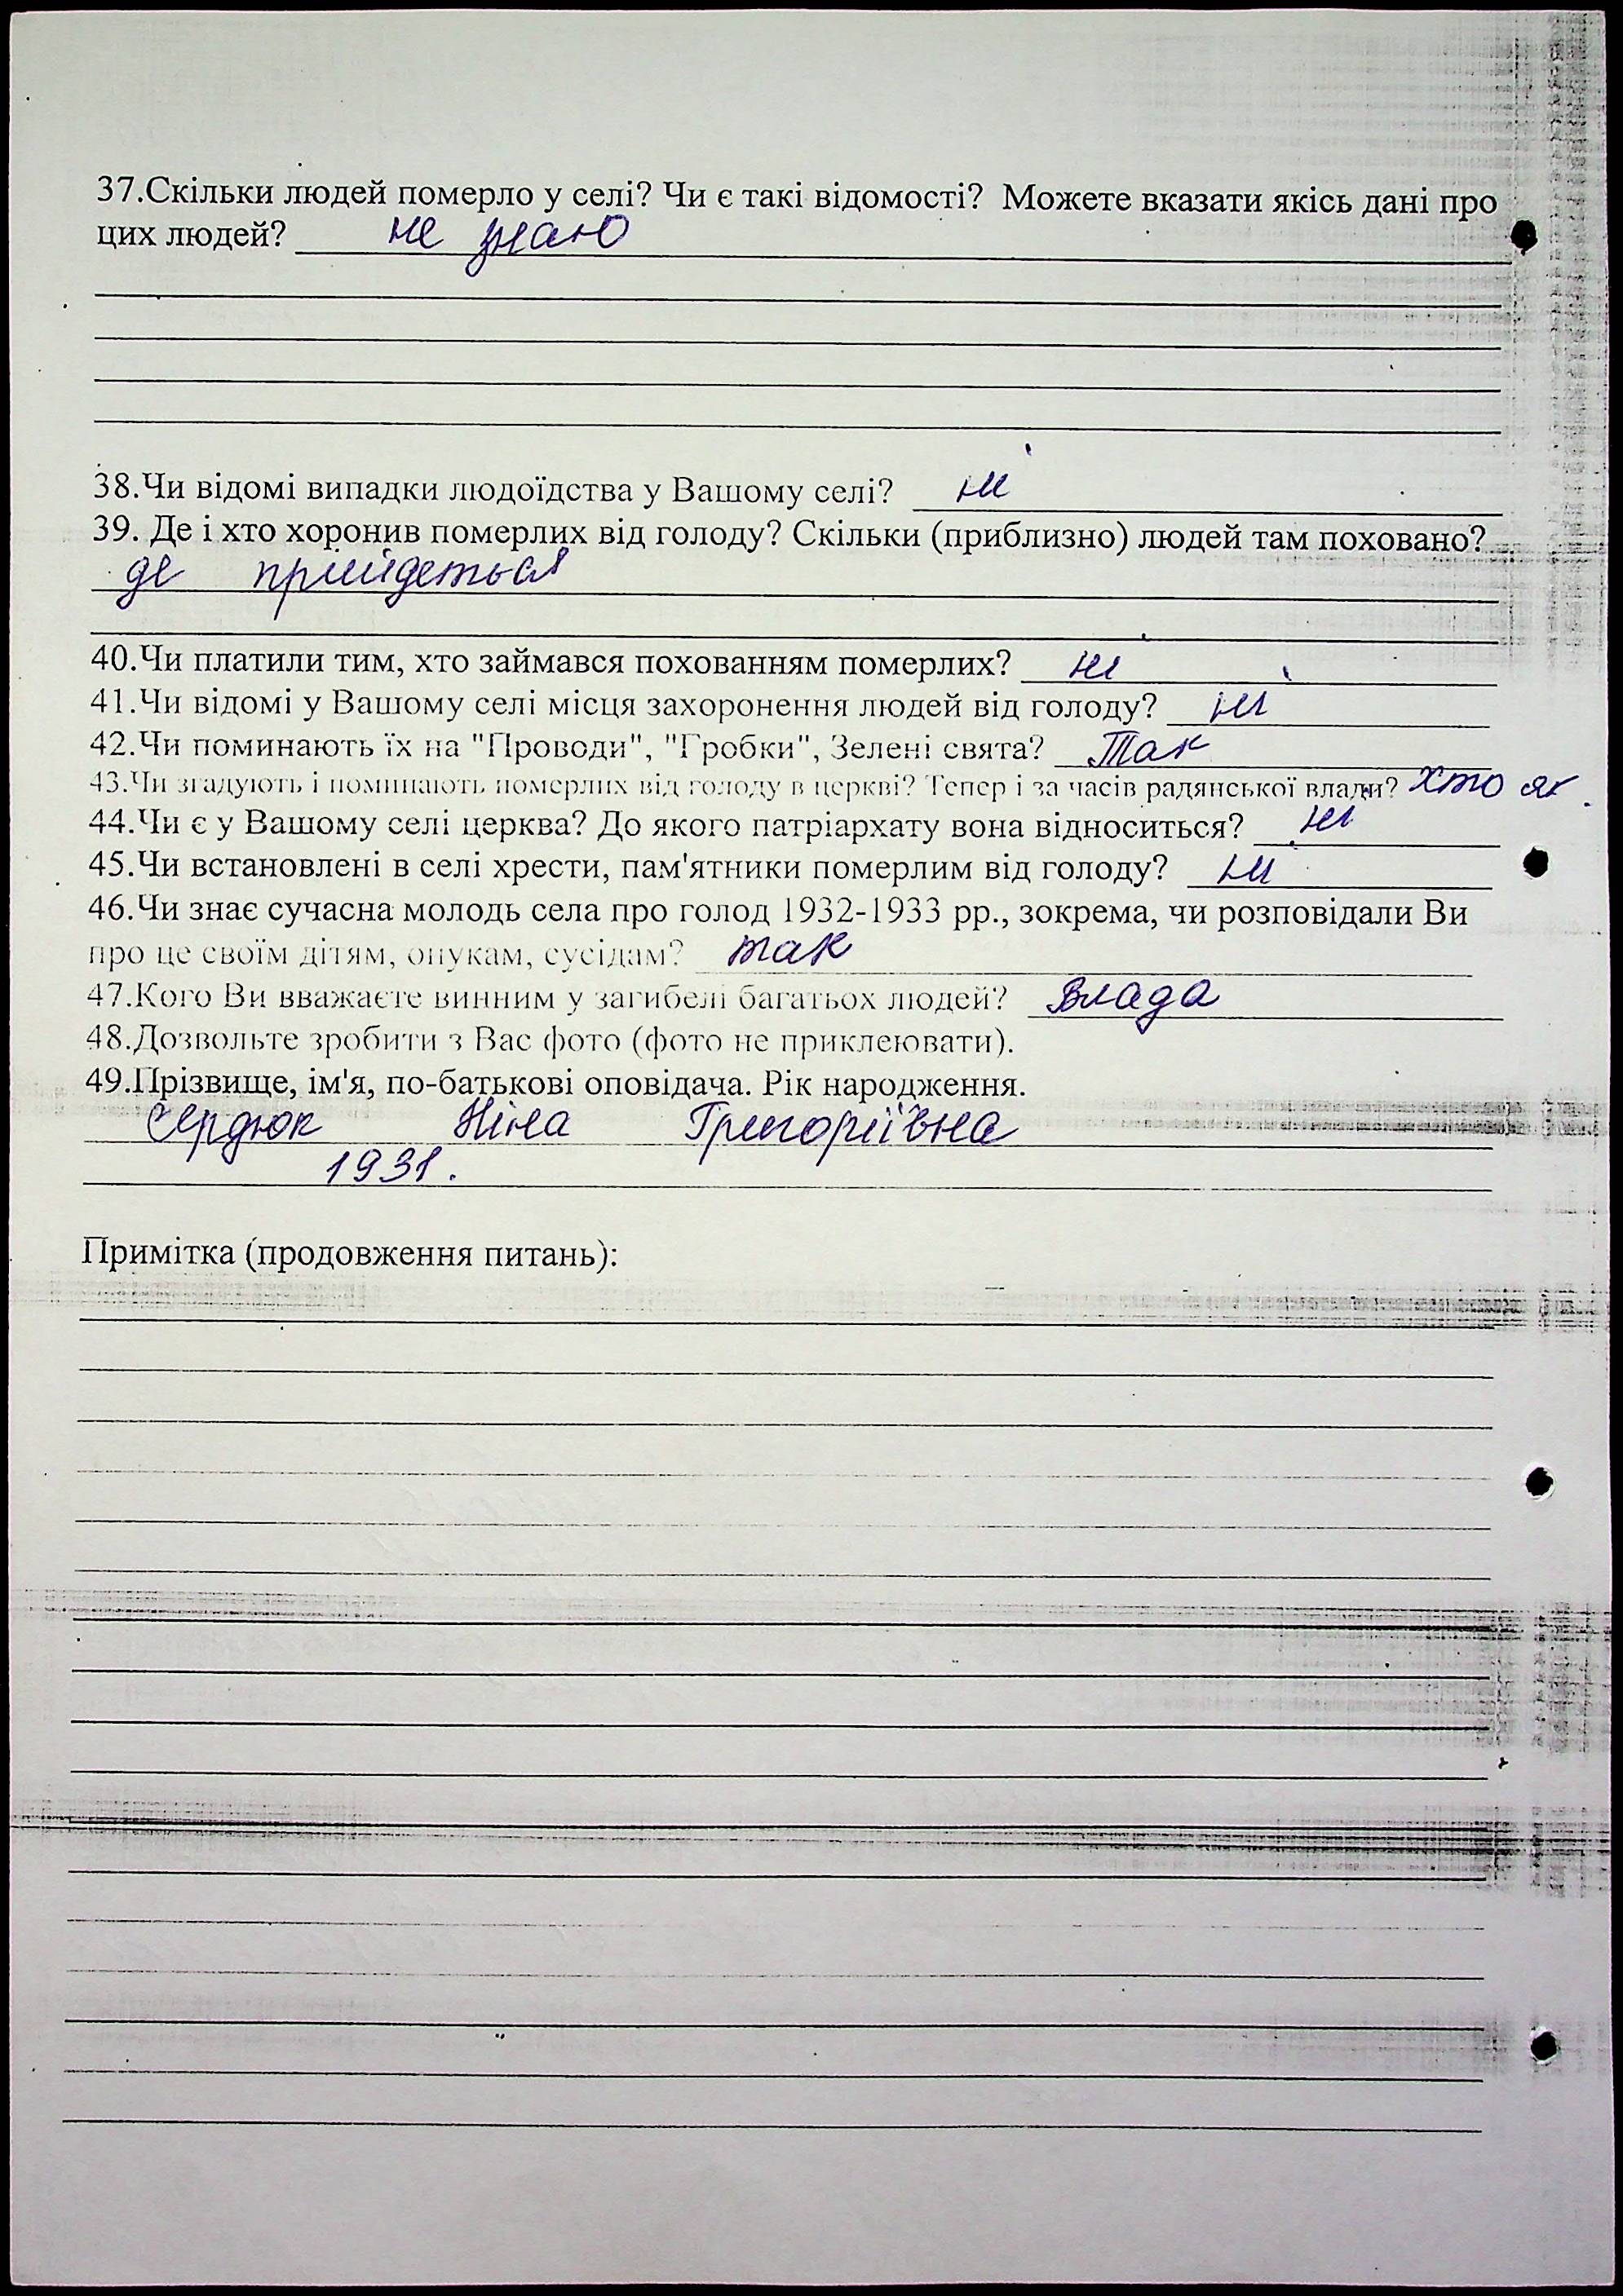 37.Скільки людей померло у селі? Чи є такі відомості? Можете вказати якісь дані про
цих людей? не знаю
38.Чи відомі випадки людоїдства у Вашому селі? ні
39. Де і хто хоронив померлих від голоду? Скільки (приблизно) людей там поховано?
де прийдеться
40.Чи платили тим, хто займався похованням померлих? ні
41.Чи відомі у Вашому селі місця захоронення людей від голоду? ні
42.Чи поминають їх на "Проводи", "Гробки", Зелені свята? Так
43.Чи згадують і поминають померлих від голоду в церкві? Тепер і за часів радянської влади? хто як.
44.Чи є у Вашому селі церква? До якого патріархату вона відноситься? ні
45.Чи встановлені в селі хрести, пам'ятники померлим від голоду? ні
46.Чи знає сучасна молодь села про голод 1932-1933 рр., зокрема, чи розповідали Ви
про це своїм дітям, онукам, сусідам? так
47.Кого Ви вважаєте винним у загибелі багатьох людей? Влада
48.Дозвольте зробити з Вас фото (фото не приклеювати).
49.Прізвище, ім'я, по-батькові оповідача. Рік народження.
Сердюк Ніна Григоріївна
1931.
Примітка (продовження питань):